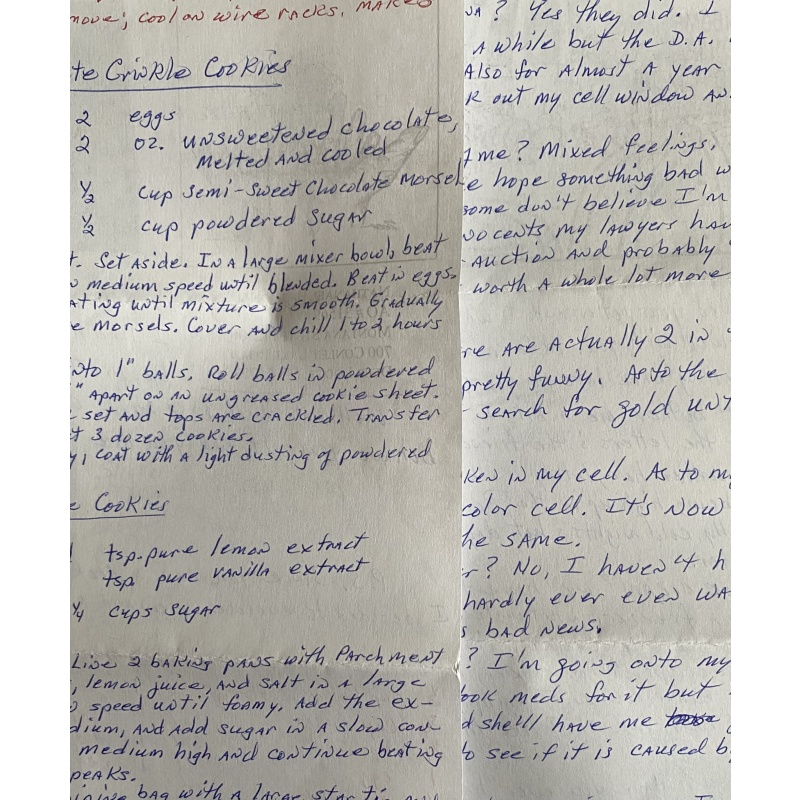 move; cool on wire racks. Makes
te Crinkle Cookies
2 eggs
2 oz. unsweetened chocolate,
melted and cooled
1/2 cup semi-sweet chocolate morsel
1/2 cup powdered sugar
t. Set aside. In a large mixer bowl, beat
medium speed until blended. Beat in eggs.
ating until mixture is smooth. Gradually
e morsels. Cover and chill 1 to 2 hours
nto 1" balls. Roll balls in powdered
" apart on an ungreased cookie sheet.
set and tops are crackled. Transfer
t 3 dozen cookies.
y, coat with a light dusting of powdered
e Cookies
1 tsp. pure lemon extract
tsp. pure vanilla extract
1/4 cups sugar
Line 2 baking pans with parchment
, lemon juice, and salt in a large
speed until foamy. Add the ex-
dium, and add sugar in a slow con-
medium high and continue beating
peaks.
ping bag with a large star tip and
? Yes they did. I
a while but the D.A.
Also for almost a year
k out my cell window an
me? Mixed feelings.
e hope something bad w
some don't believe I'm
wo cents my lawyers hav
auction and probably
worth a whole lot more
re are actually 2 in
pretty funny. As to the
search for gold unt
ken in my cell. As to m
color cell. It's now
he same.
r? No, I haven't h
hardly ever even wa
s bad news.
? I'm going onto my
ook meds for it but
d she'll have me
to see if it is caused b